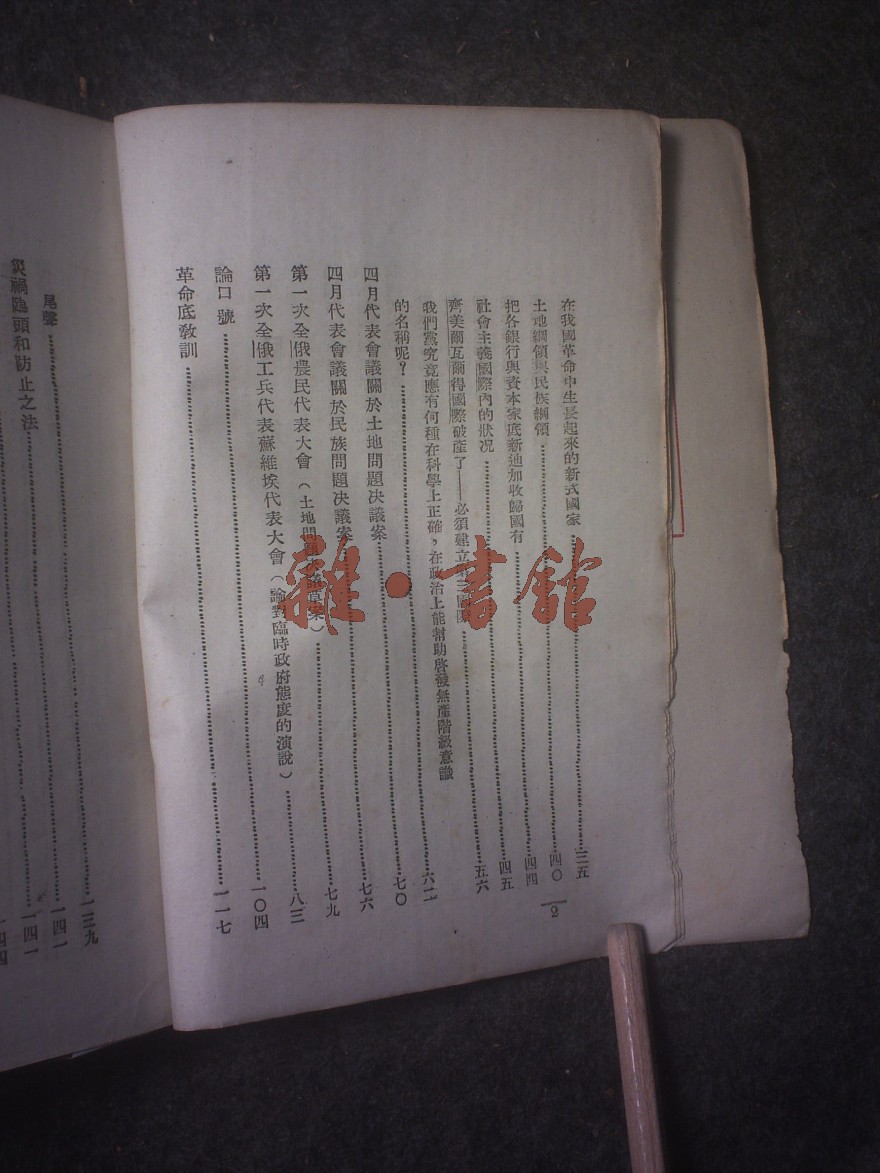 在我國革命中生長起來的新式國家……三五
土地綱領與民族綱領……四〇
把各銀行與資本家底新迪加收歸國有……四四
社會主義國際內的狀況……四五
齊美爾瓦爾得國際破產了——必須建立第三國際……五六
我們黨究竟應有何種在科學上正確，在政治上能幫助啓發無產階級意識
的名稱呢？……六二
四月代表會議關於土地問題決議案……七〇
四月代表會議關於民族問題決議案……七六
第一次全俄農民代表大會（土地問題決議草案）……七九
第一次全俄工兵代表蘇維埃代表大會（論對臨時政府態度的演說）……八三
論口號……一〇四
革命底教訓……一一七
2
尾聲
災禍臨頭和防止之法
一三九
一四一
一四一
一四四
雜·書館